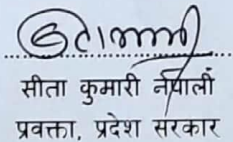 सीता कुमारी नेपाली
प्रवक्ता, प्रदेश सरकार